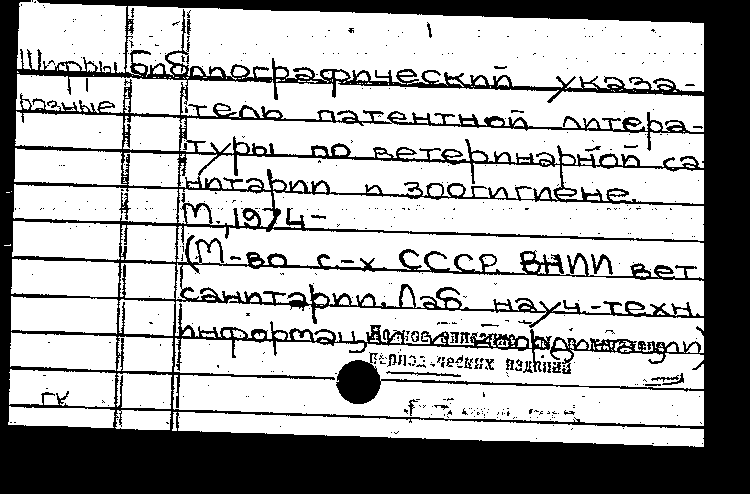 Шифры библиографический указа-
разные тель патентной литера-
туры по ветеринарной са
нитарии и зоогигиене.
М., 1974-
(М-во с.-х. СССР. ВНИИ вет.
санитарии. Лаб. науч.-техн.
информации
периодических изданий
ГК